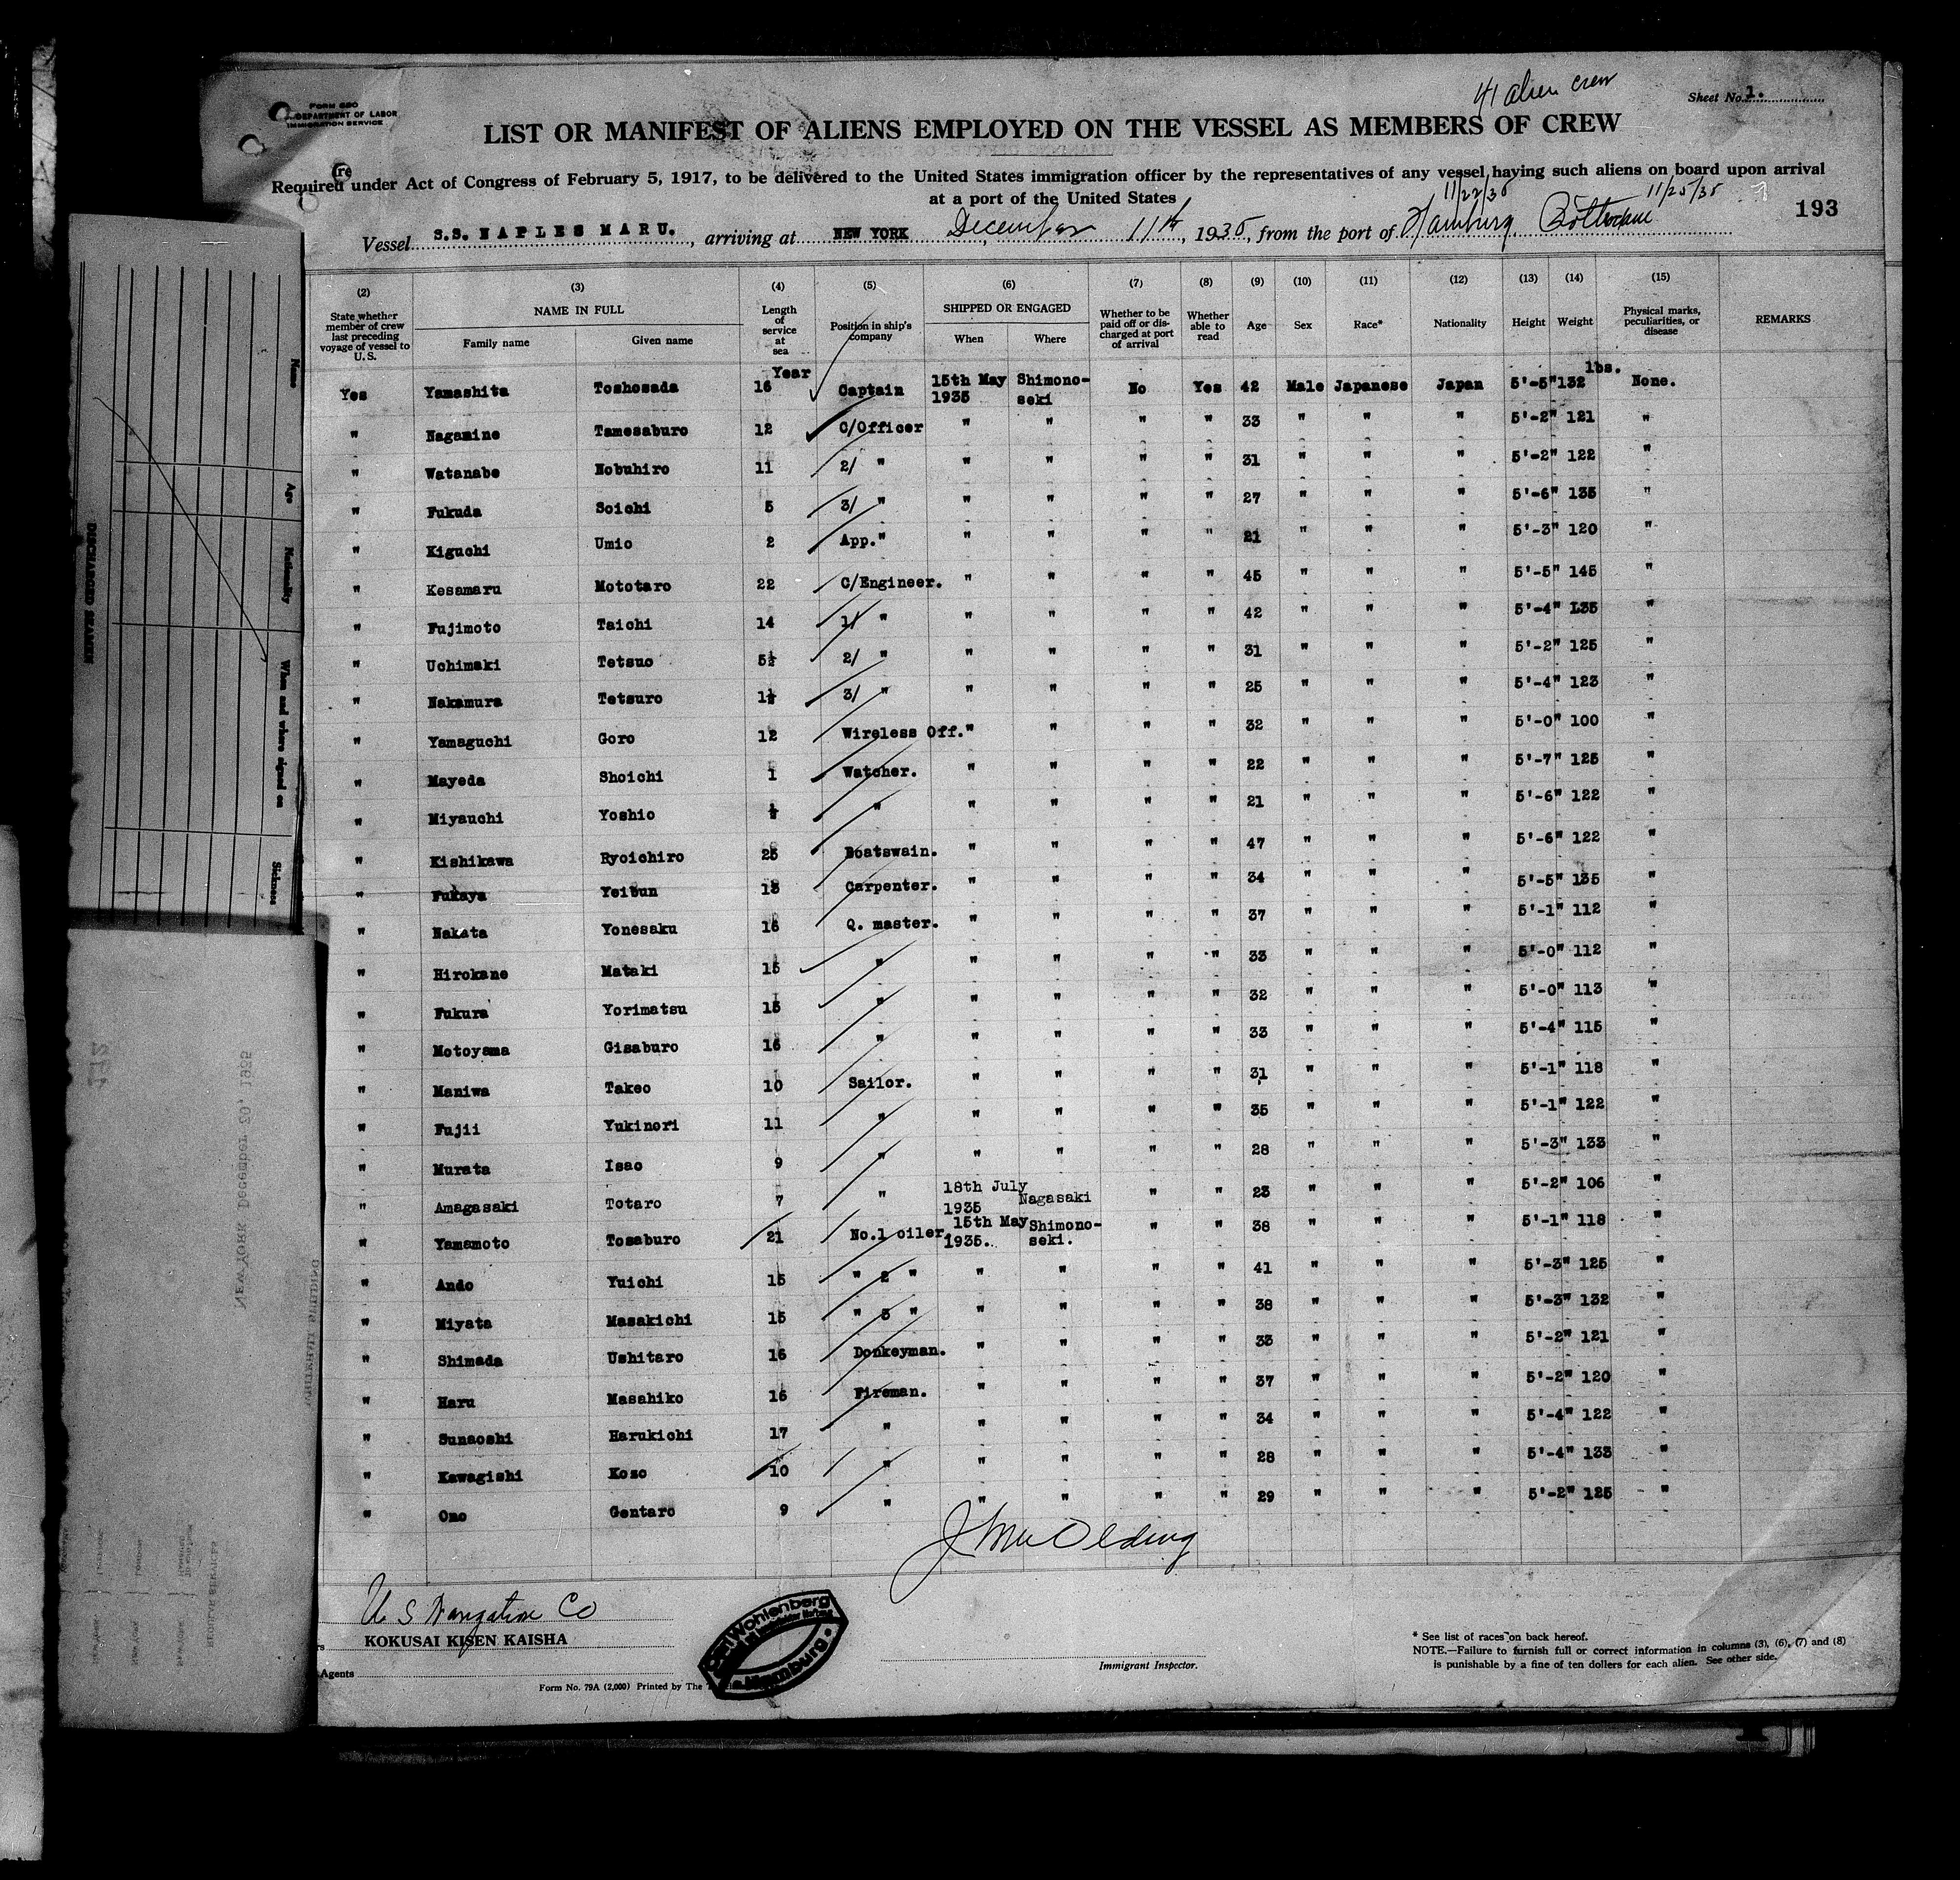 41 alien crew
Sheet No. 1.
FORM 680
DEPARTMENT OF LABOR
IMMIGRATION SERVICE
LIST OR MANIFEST OF ALIENS EMPLOYED ON THE VESSEL AS MEMBERS OF CREW
Required under Act of Congress of February 5, 1917, to be delivered to the United States immigration officer by the representatives of any vessel having such aliens on board upon arrival
at a port of the United States
11/22/35 11/25/35
193
Vessel S.S. NAPLES MARU., arriving at NEW YORK December 11th, 1935, from the port of Hamburg.
(2) (3) (4) (5) (6) (7) (8) (9) (10) (11) (12) (13) (14) (15)
State whether member of crew last preceding voyage of vessel to U.S. NAME IN FULL Family name Given name Length of service at sea Position in ship's company SHIPPED OR ENGAGED When Where Whether to be paid off or discharged at port of arrival Whether able to read Age Sex Race* Nationality Height Weight Physical marks, peculiarities, or disease REMARKS
Year lbs.
Yes Yamashita Toshosada 16 Captain 15th May 1935 Shimonoseki No Yes 42 Male Japanese Japan 5'-5" 132 None.
" Nagamine Tamesaburo 12 C/Officer " " " " 33 " " " 5'-2" 121 "
" Watanabe Nobuhiro 11 2/ " " " " " 31 " " " 5'-2" 122 "
" Fukuda Soichi 5 3/ " " " " " 27 " " " 5'-6" 135 "
" Kiguchi Umio 2 App." " " " " 21 " " " 5'-3" 120 "
" Kesamaru Mototaro 22 C/Engineer. " " " " 45 " " " 5'-5" 145 "
" Fujimoto Taichi 14 1/ " " " " " 42 " " " 5'-4" 135 "
" Uchimaki Tetsuo 5½ 2/ " " " " " 31 " " " 5'-2" 125 "
" Nakamura Tetsuro 1½ 3/ " " " " " 25 " " " 5'-4" 123 "
" Yamaguchi Goro 12 Wireless Off. " " " " 32 " " " 5'-0" 100 "
" Mayeda Shoichi 1 Watcher. " " " " 22 " " " 5'-7" 125 "
" Miyauchi Yoshio " " " " " 21 " " " 5'-6" 122 "
" Kishikawa Ryoichiro 25 Boatswain. " " " " 47 " " " 5'-6" 122 "
" Fukaya Yeibun 13 Carpenter. " " " " 34 " " " 5'-5" 135 "
" Nakata Yonesaku 16 Q. master. " " " " 37 " " " 5'-1" 112 "
" Hirokane Mataki 15 " " " " " 33 " " " 5'-0" 112 "
" Fukura Yorimatsu 15 " " " " " 32 " " " 5'-0" 113 "
" Motoyama Gisaburo 16 " " " " " 33 " " " 5'-4" 115 "
" Maniwa Takeo 10 Sailor. " " " " 31 " " " 5'-1" 118 "
" Fujii Yukinori 11 " " " " " 35 " " " 5'-1" 122 "
" Murata Isao 9 " " " " " 28 " " " 5'-3" 133 "
" Amagasaki Totaro 7 " 18th July 1935 Nagasaki " " 23 " " " 5'-2" 106 "
" Yamamoto Tosaburo 21 No.1 oiler 15th May 1935. Shimonoseki. " " 38 " " " 5'-1" 118 "
" Ando Yuichi 15 " 2 " " " " " 41 " " " 5'-3" 125 "
" Miyata Masakichi 15 " 3 " " " " " 38 " " " 5'-3" 132 "
" Shimada Ushitaro 16 Donkeyman. " " " " 33 " " " 5'-2" 121 "
" Haru Masahiko 16 Fireman. " " " " 37 " " " 5'-2" 120 "
" Sunaoshi Harukichi 17 " " " " " 34 " " " 5'-4" 122 "
" Kawagishi Kozo 10 " " " " " 28 " " " 5'-4" 133 "
" Ono Gentaro 9 " " " " " 29 " " " 5'-2" 125 "
U S Navigation Co
KOKUSAI KISEN KAISHA
Agents
Wohlenberg
Hamburg
Immigrant Inspector.
* See list of races on back hereof.
NOTE.—Failure to furnish full or correct information in columns (3), (6), (7) and (8)
is punishable by a fine of ten dollars for each alien. See other side.
Form No. 79A (2,000) Printed by The
Name
Age
Nationality
When and where signed on
Sickness
DISCHARGED SEAMEN
192
NEW YORK December 20, 1935